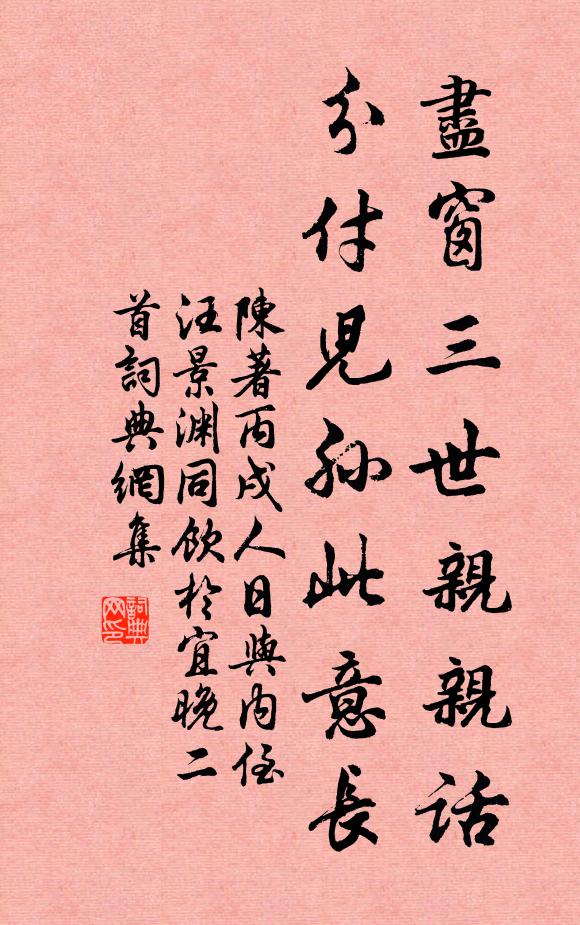 盡窗三世親親話
分付兒孫此意長
陳著丙戌人日與內侄
汪景淵同飲於宜晚二
首詞典網集
詞典
网印